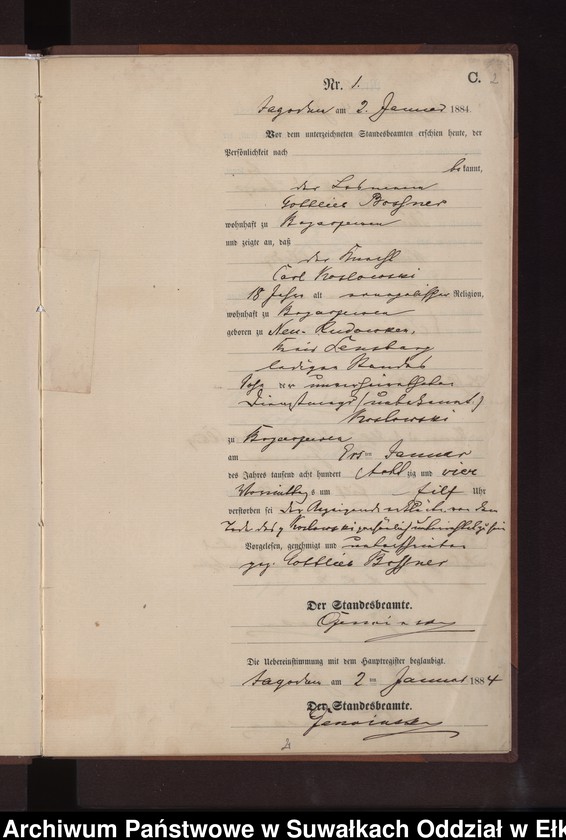 Nr. 1.
C. 1
am 2. Januar 1884
Vor dem unterzeichneten Standesbeamten erschien heute, der
Persönlichkeit nach
bekannt,
der Losmann
Gottlieb
wohnhaft zu
und zeigte an, daß
der Knecht
Carl Koslowski
18 Jahre alt evangelischer Religion,
wohnhaft zu
geboren zu Neu-
Kreis Sensburg
ledigen Standes
Sohn der unverheiratheten
Dienstmagd (unbekannt)
Koslowski
zu
am Ersten Januar
des Jahres tausend acht hundert achtzig und vier
Vormittags um elf Uhr
verstorben sei. Der Anzeigende erklärte von dem
Tode des p Koslowski persönlich unterrichtet zu sein
Vorgelesen, genehmigt und unterschrieben
gez. Gottlieb
Der Standesbeamte.
Die Uebereinstimmung mit dem Hauptregister beglaubigt.
am 2ten Januar 1884
Der Standesbeamte.
Archiwum Państwowe w Suwałkach Oddział w Ełk